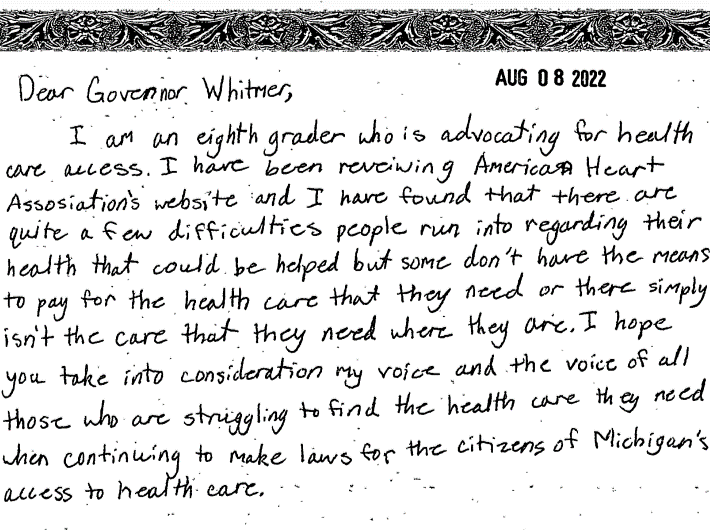 AUG 08 2022
Dear Govennor Whitmer,
I am an eighth grader who is advocating for health
care access. I have been reveiwing American Heart
Assosiation's website and I have found that there are
quite a few difficulties people run into regarding their
health that could be helped but some don't have the means
to pay for the health care that they need or there simply
isn't the care that they need where they are. I hope
you take into consideration my voice and the voice of all
those who are struggling to find the health care they need
when continuing to make laws for the citizens of Michigan's
access to health care.